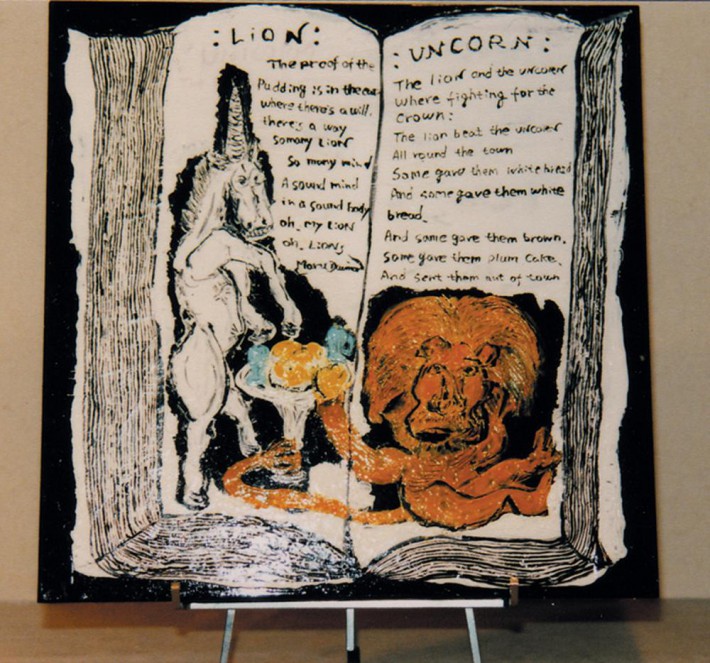 : LION :
The proof of the
Pudding is in the
where there's a will,
there's a way
somany Lion
So many mind
A sound mind
in a sound body
oh, my LION
oh, Lions
: UNCORN :
The lion and the uncorn
where fighting for the
Crown:
The lion beat the uncorn
All round the town
Some gave them white bread
And some gave them white
bread.
And some gave them brown.
Some gave them plum cake.
And sent them out of town